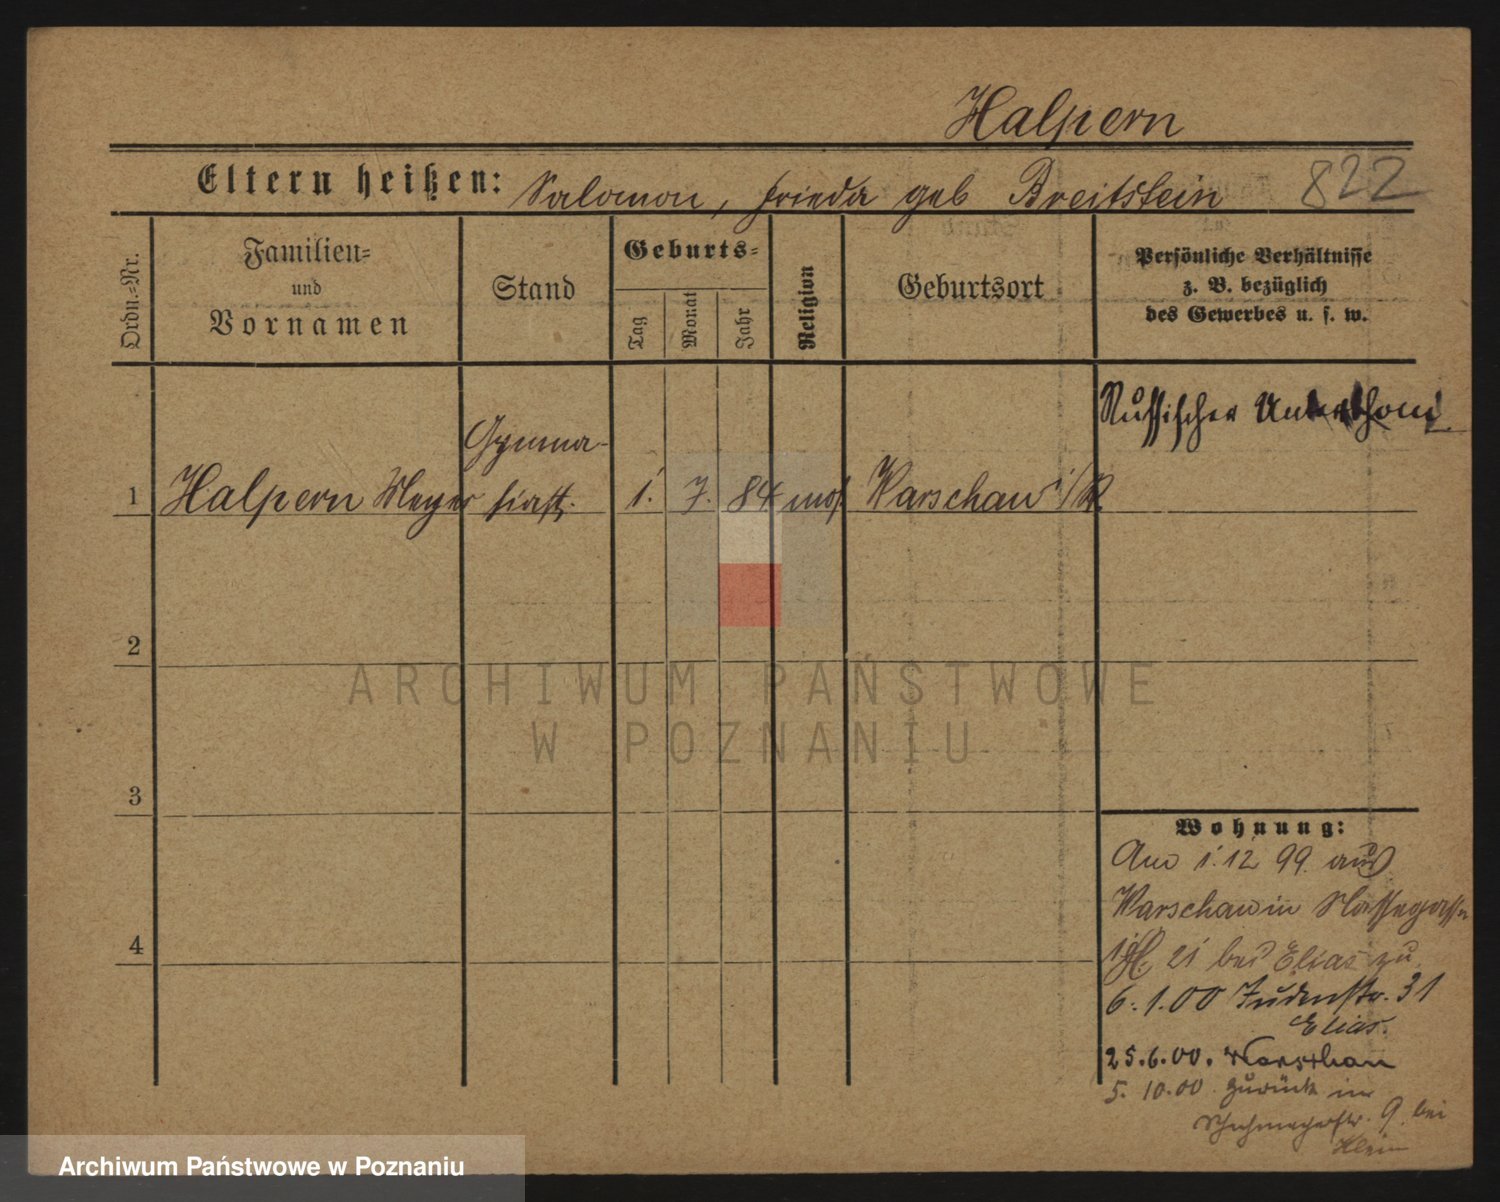 Halpern
Eltern heißen: Salomon, Frieda geb Breitstein 822
Ordn.=Nr.
Familien=
und
Vornamen
Stand
Geburts=
Tag
Monat
Jahr
Religion
Geburtsort
Persönliche Verhältnisse
z. B. bezüglich
des Gewerbes u. s. w.
Russischer Unterthan
1 Halpern Meyer Gymna-
siast. 1. 7. 84 mos. Warschau i/R
2
3
4
Wohnung:
Am 1.12 99. aus
Warschau in
21 bei Elias zu
6.1.00 Judenstr. 31
Elias.
25.6.00. Warschau
5. 10.00 zurück in
Schuhmacherstr. 9. bei
Klein
ARCHIWUM PAŃSTWOWE
W POZNANIU
Archiwum Państwowe w Poznaniu